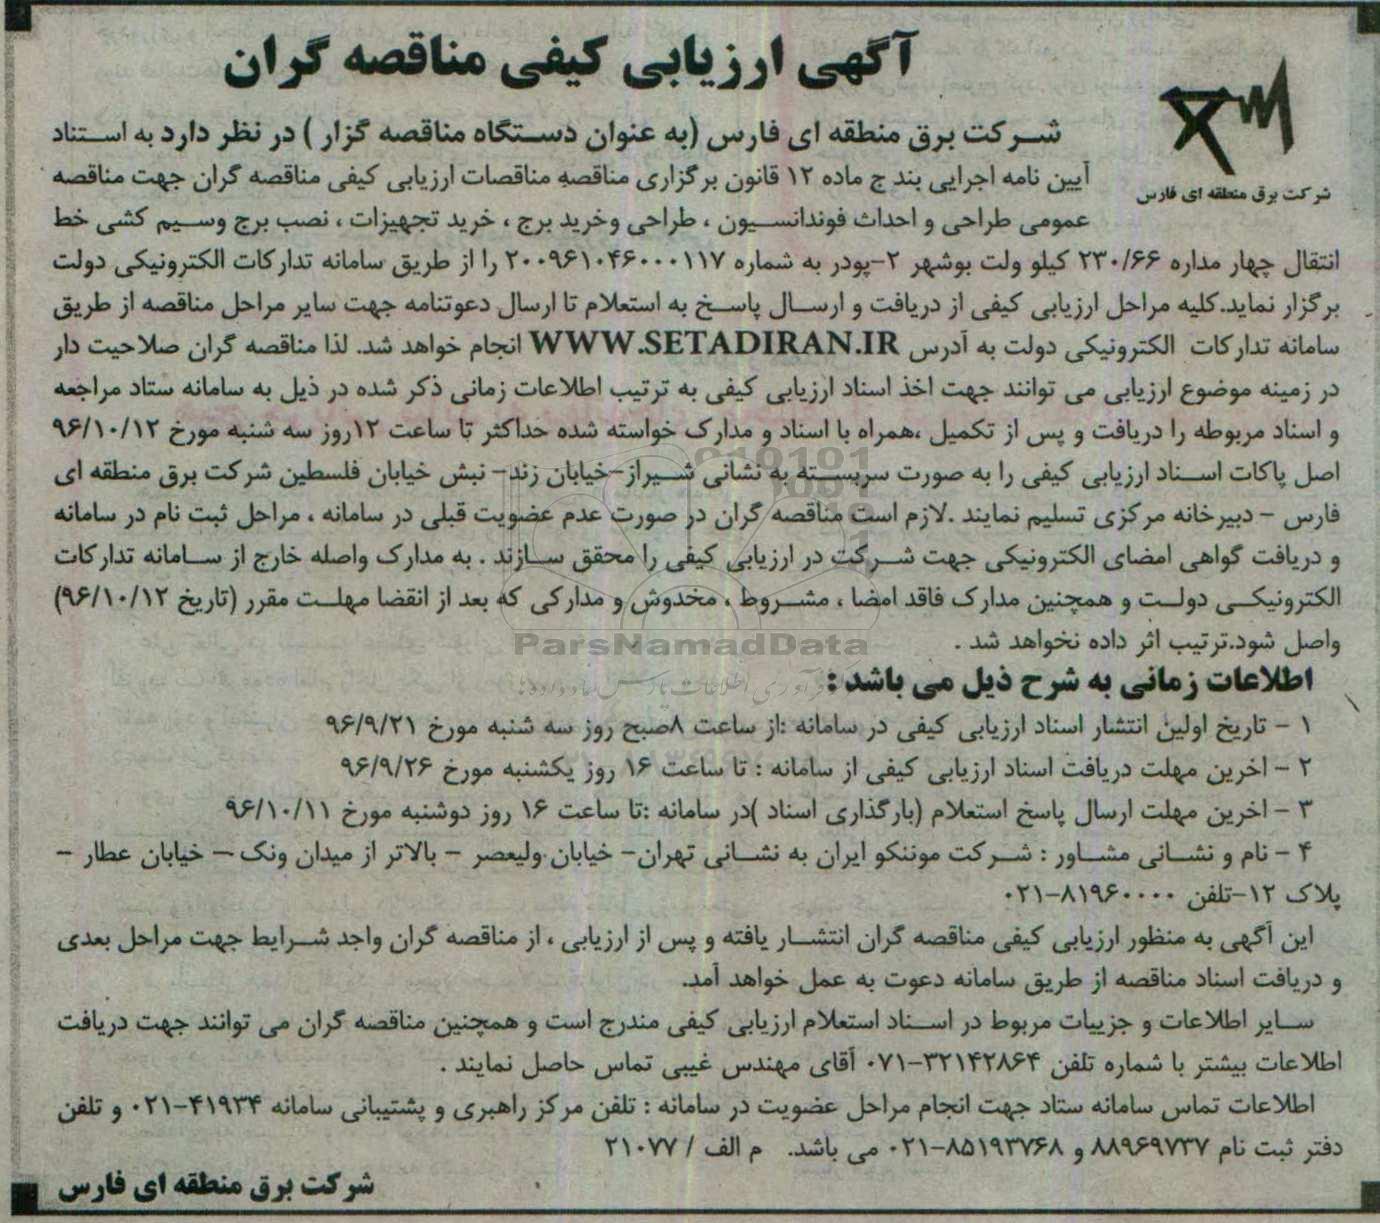 آگهی ارزیابی کیفی مناقصه گران
شرکت برق منطقه ای فارس
شرکت برق منطقه ای فارس (به عنوان دستگاه مناقصه گزار ) در نظر دارد به استناد
آیین نامه اجرایی بند ج ماده ۱۲ قانون برگزاری مناقصه مناقصات ارزیابی کیفی مناقصه گران جهت مناقصه
عمومی طراحی و احداث فوندانسیون ، طراحی وخرید برج ، خرید تجهیزات ، نصب برج وسیم کشی خط
انتقال چهار مداره ۲۳۰/۶۶ کیلو ولت بوشهر ۲-پودر به شماره ۲۰۰۹۶۱۰۴۶۰۰۰۱۱۷ را از طریق سامانه تدارکات الکترونیکی دولت
برگزار نماید.کلیه مراحل ارزیابی کیفی از دریافت و ارسال پاسخ به استعلام تا ارسال دعوتنامه جهت سایر مراحل مناقصه از طریق
سامانه تدارکات الکترونیکی دولت به آدرس WWW.SETADIRAN.IR انجام خواهد شد. لذا مناقصه گران صلاحیت دار
در زمینه موضوع ارزیابی می توانند جهت اخذ اسناد ارزیابی کیفی به ترتیب اطلاعات زمانی ذکر شده در ذیل به سامانه ستاد مراجعه
و اسناد مربوطه را دریافت و پس از تکمیل ،همراه با اسناد و مدارک خواسته شده حداکثر تا ساعت ۱۲روز سه شنبه مورخ ۹۶/۱۰/۱۲
اصل پاکات اسناد ارزیابی کیفی را به صورت سربسته به نشانی شیراز-خیابان زند- نبش خیابان فلسطین شرکت برق منطقه ای
فارس - دبیرخانه مرکزی تسلیم نمایند .لازم است مناقصه گران در صورت عدم عضویت قبلی در سامانه ، مراحل ثبت نام در سامانه
و دریافت گواهی امضای الکترونیکی جهت شرکت در ارزیابی کیفی را محقق سازند . به مدارک واصله خارج از سامانه تدارکات
الکترونیکی دولت و همچنین مدارک فاقد امضا ، مشروط ، مخدوش و مدارکی که بعد از انقضا مهلت مقرر (تاریخ ۹۶/۱۰/۱۲)
واصل شود.ترتیب اثر داده نخواهد شد .
ParsNamadData
اطلاعات زمانی به شرح ذیل می باشد :
۱ - تاریخ اولین انتشار اسناد ارزیابی کیفی در سامانه :از ساعت ۸صبح روز سه شنبه مورخ ۹۶/۹/۲۱
۲ - اخرین مهلت دریافت اسناد ارزیابی کیفی از سامانه : تا ساعت ۱۶ روز یکشنبه مورخ ۹۶/۹/۲۶
۳ - اخرین مهلت ارسال پاسخ استعلام (بارگذاری اسناد )در سامانه :تا ساعت ۱۶ روز دوشنبه مورخ ۹۶/۱۰/۱۱
۴ - نام و نشانی مشاور : شرکت موننکو ایران به نشانی تهران- خیابان ولیعصر - بالاتر از میدان ونک – خیابان عطار -
پلاک ۱۲-تلفن ۸۱۹۶۰۰۰۰-۰۲۱
این آگهی به منظور ارزیابی کیفی مناقصه گران انتشار یافته و پس از ارزیابی ، از مناقصه گران واجد شرایط جهت مراحل بعدی
و دریافت اسناد مناقصه از طریق سامانه دعوت به عمل خواهد آمد.
سایر اطلاعات و جزییات مربوط در اسناد استعلام ارزیابی کیفی مندرج است و همچنین مناقصه گران می توانند جهت دریافت
اطلاعات بیشتر با شماره تلفن ۳۲۱۴۲۸۶۴-۰۷۱ آقای مهندس غیبی تماس حاصل نمایند .
اطلاعات تماس سامانه ستاد جهت انجام مراحل عضویت در سامانه : تلفن مرکز راهبری و پشتیبانی سامانه ۴۱۹۳۴-۰۲۱ و تلفن
دفتر ثبت نام ۸۸۹۶۹۷۳۷ و ۸۵۱۹۳۷۶۸-۰۲۱ می باشد. م الف / ۲۱۰۷۷
شرکت برق منطقه ای فارس